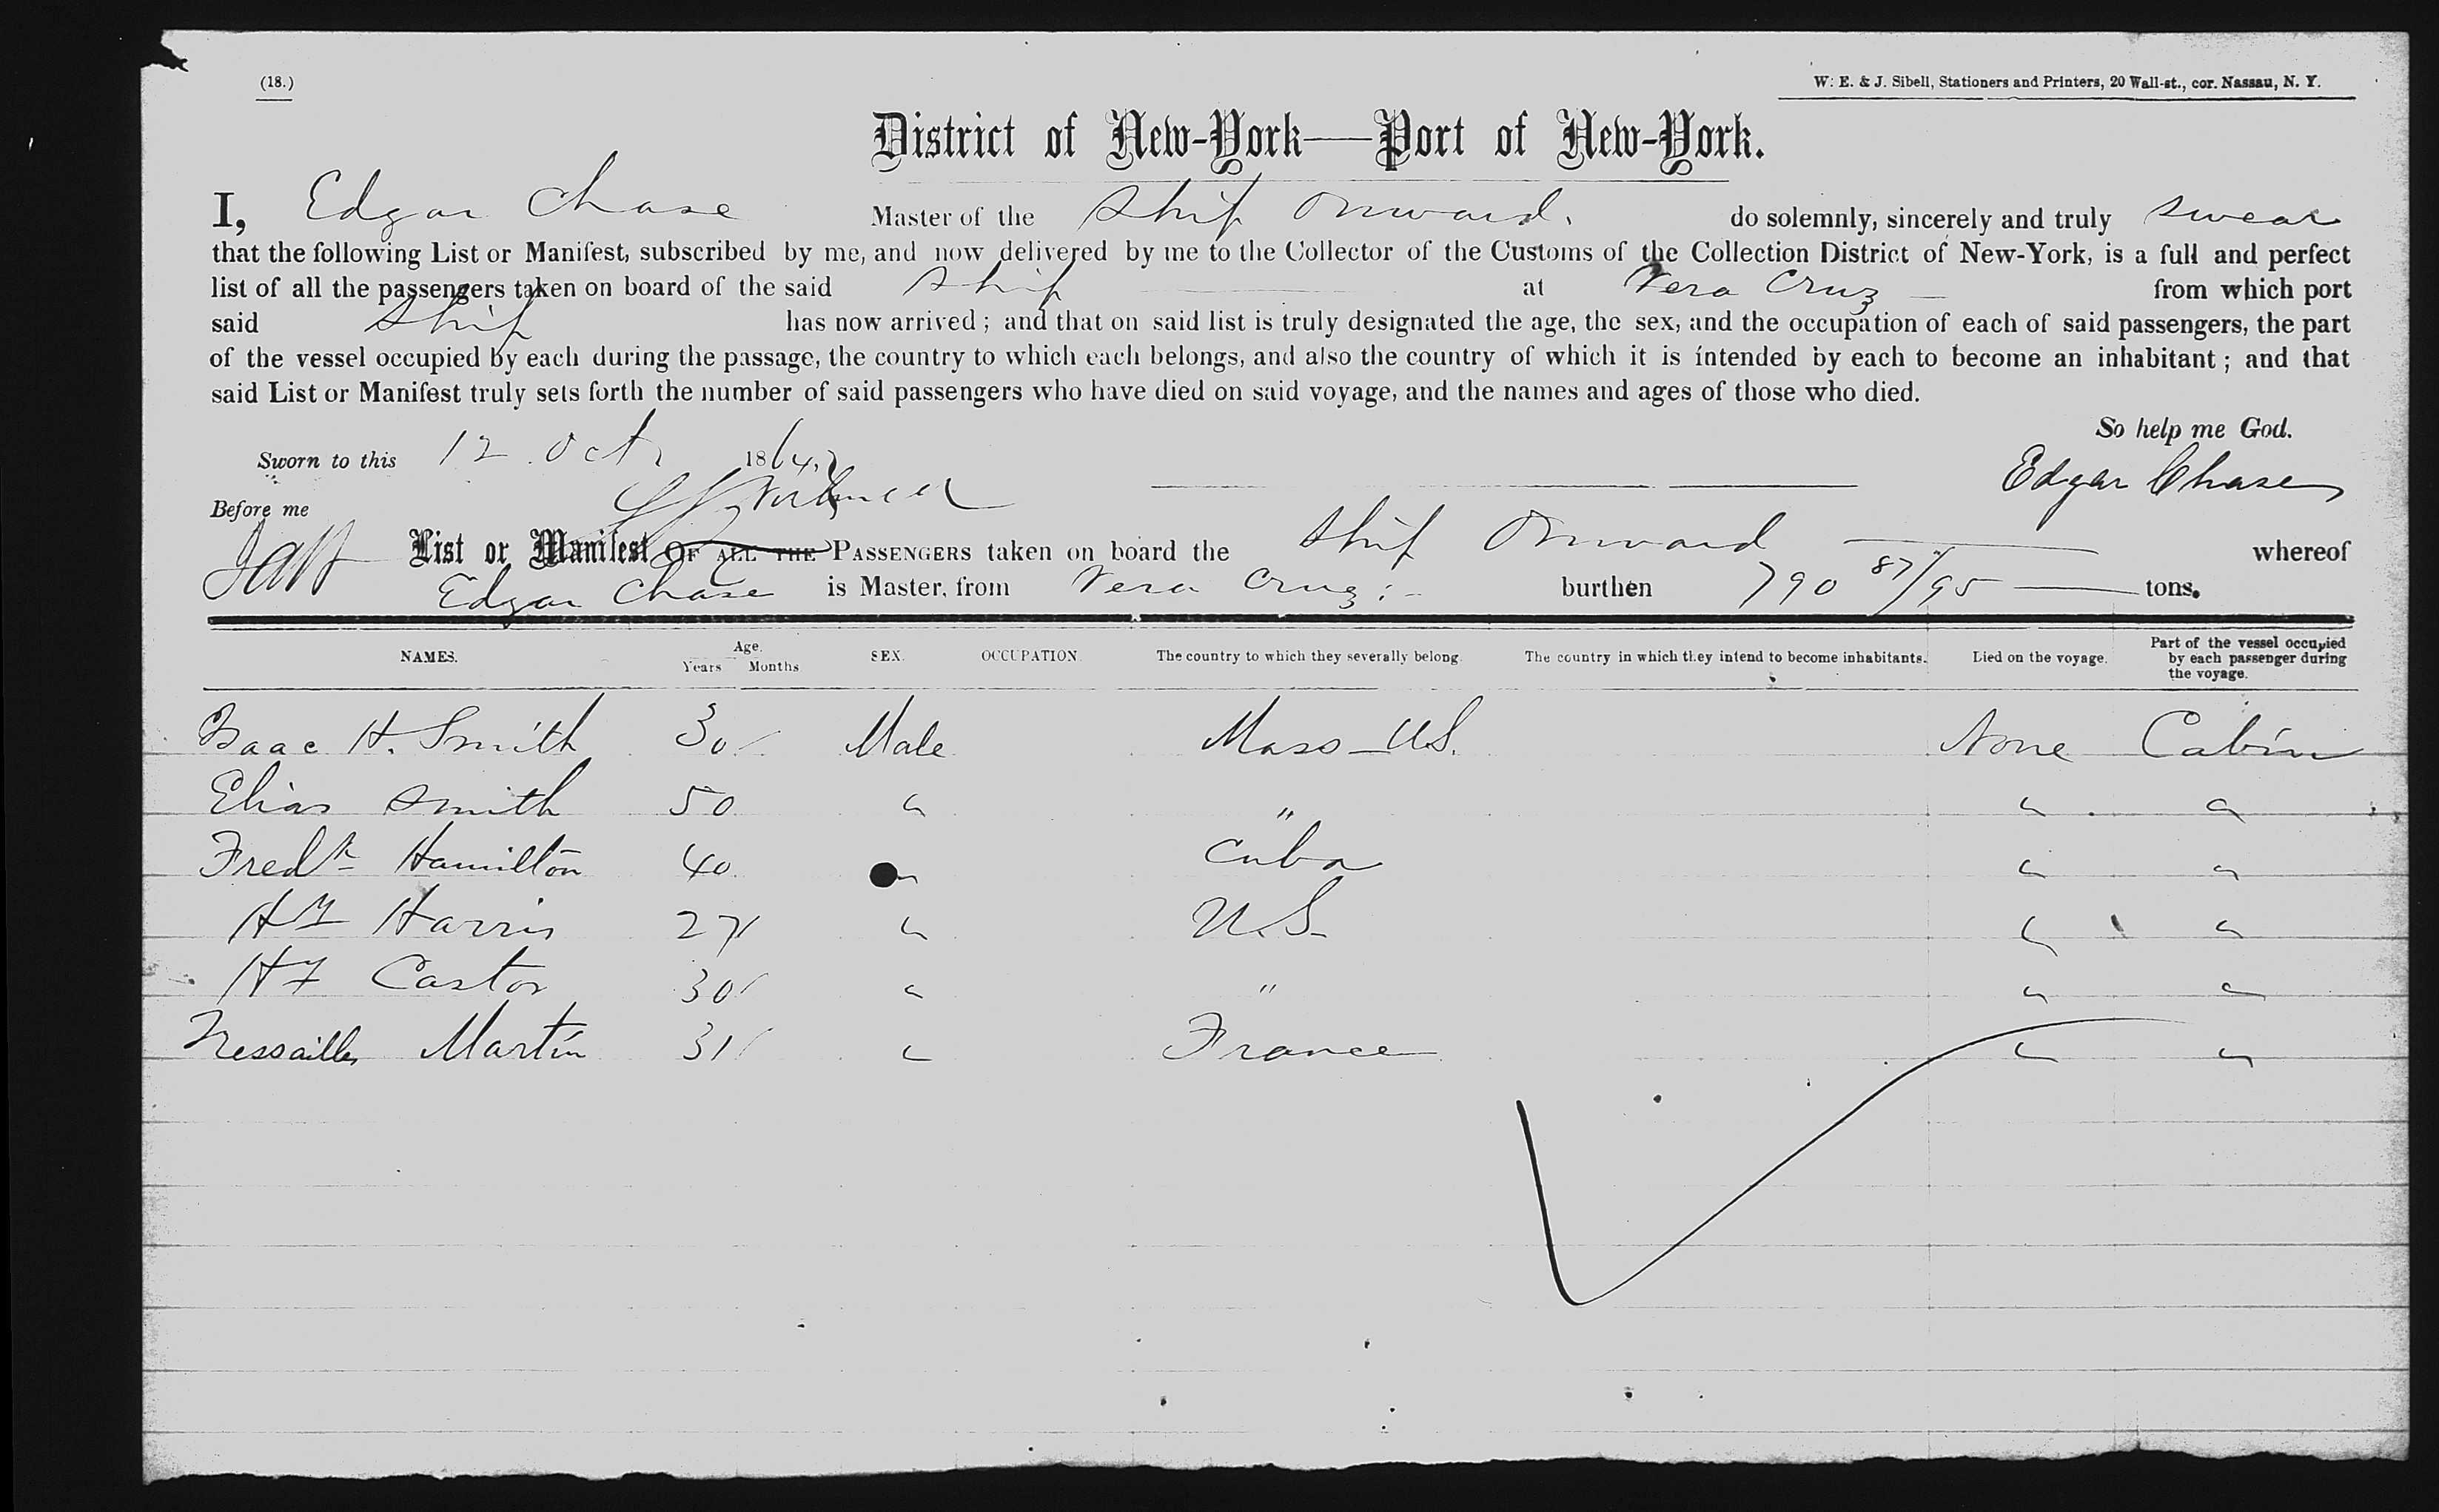 (18.)
W. E. & J. Sibell, Stationers and Printers, 20 Wall-st., cor. Nassau, N. Y.
District of New-York—Port of New-York.
I, Edgar Chase Master of the Ship Onward. do solemnly, sincerely and truly swear
that the following List or Manifest, subscribed by me, and now delivered by me to the Collector of the Customs of the Collection District of New-York, is a full and perfect
list of all the passengers taken on board of the said Ship at Vera Cruz from which port
said Ship has now arrived; and that on said list is truly designated the age, the sex, and the occupation of each of said passengers, the part
of the vessel occupied by each during the passage, the country to which each belongs, and also the country of which it is intended by each to become an inhabitant; and that
said List or Manifest truly sets forth the number of said passengers who have died on said voyage, and the names and ages of those who died.
So help me God.
Sworn to this 12 Oct 1864.
Edgar Chase
Before me
List or Manifest OF ALL THE PASSENGERS taken on board the Ship Onward whereof
Edgar Chase is Master, from Vera Cruz burthen 790 87/95 tons.
NAMES. Age. Years Months SEX. OCCUPATION. The country to which they severally belong. The country in which they intend to become inhabitants. Died on the voyage. Part of the vessel occupied by each passenger during the voyage.
Isaac H. Smith 30 Male Mass U.S. None Cabin
Elias Smith 50 " " " "
Fredk Hamilton 40 " Cuba " "
Hy Harris 27 " U.S. " "
H F Castor 30 " " " "
Martin 31 " France " "